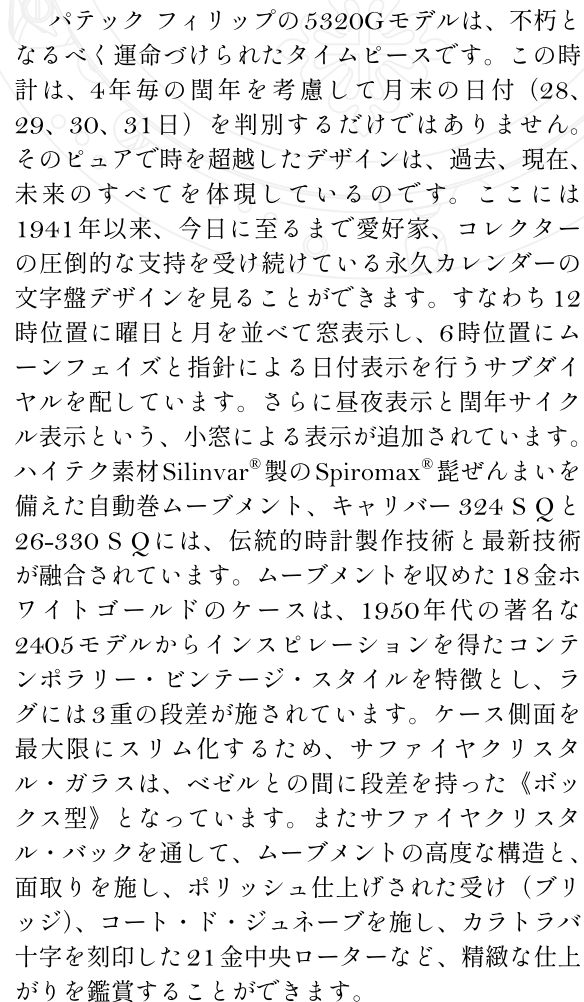 パテック フィリップの5320Gモデルは、不朽と
なるべく運命づけられたタイムピースです。この時
計は、4年毎の閏年を考慮して月末の日付（28、
29、30、31日）を判別するだけではありません。
そのピュアで時を超越したデザインは、過去、現在、
未来のすべてを体現しているのです。ここには
1941年以来、今日に至るまで愛好家、コレクター
の圧倒的な支持を受け続けている永久カレンダーの
文字盤デザインを見ることができます。すなわち12
時位置に曜日と月を並べて窓表示し、6時位置にム
ーンフェイズと指針による日付表示を行うサブダイ
ヤルを配しています。さらに昼夜表示と閏年サイク
ル表示という、小窓による表示が追加されています。
ハイテク素材Silinvar®製のSpiromax®髭ぜんまいを
備えた自動巻ムーブメント、キャリバー 324 S Qと
26-330 S Qには、伝統的時計製作技術と最新技術
が融合されています。ムーブメントを収めた18金ホ
ワイトゴールドのケースは、1950年代の著名な
2405モデルからインスピレーションを得たコンテ
ンポラリー・ビンテージ・スタイルを特徴とし、ラ
グには3重の段差が施されています。ケース側面を
最大限にスリム化するため、サファイヤクリスタ
ル・ガラスは、ベゼルとの間に段差を持った《ボッ
クス型》となっています。またサファイヤクリスタ
ル・バックを通して、ムーブメントの高度な構造と、
面取りを施し、ポリッシュ仕上げされた受け（ブリ
ッジ）、コート・ド・ジュネーブを施し、カラトラバ
十字を刻印した21金中央ローターなど、精緻な仕上
がりを鑑賞することができます。